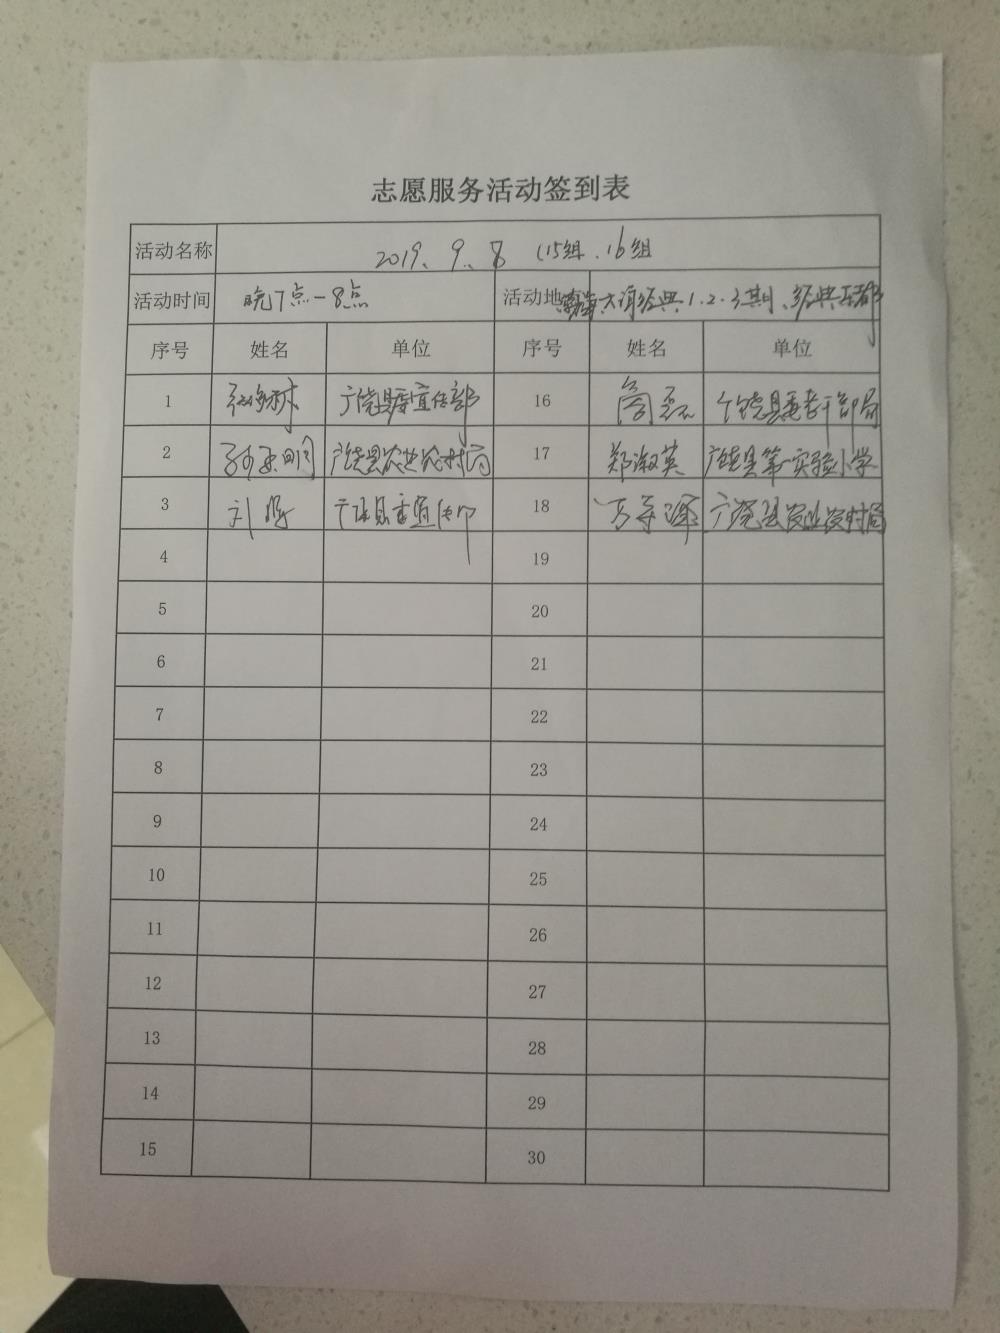 志愿服务活动签到表
活动名称 2019、9、8 (15组、16组
活动时间 晚7点-8点 活动地 经典1.2.3期、经典
序号 姓名 单位 序号 姓名 单位
1 广饶县委宣传部 16 广饶县委老干部局
2 孙 明 广饶县农业农村局 17 郑淑英 广饶县第一实验小学
3 刘 广饶县委宣传部 18 广饶县农业农村局
4 19
5 20
6 21
7 22
8 23
9 24
10 25
11 26
12 27
13 28
14 29
15 30